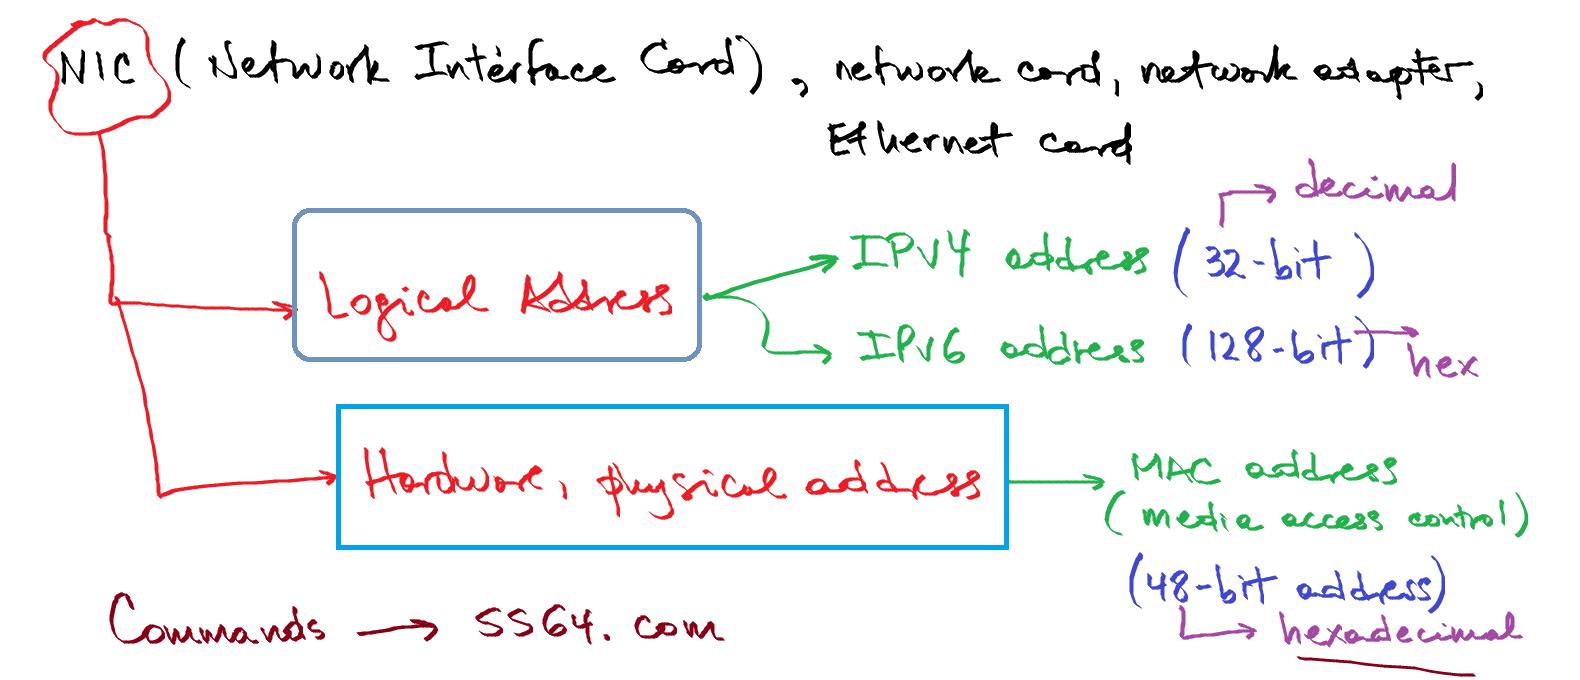 NIC (Network Interface Card), network card, network adapter,
Ethernet card
decimal
Logical Address
IPv4 address (32-bit)
IPv6 address (128-bit)
hex
Hardware, physical address
MAC address
(media access control)
(48-bit address)
hexadecimal
Commands → SS64.com